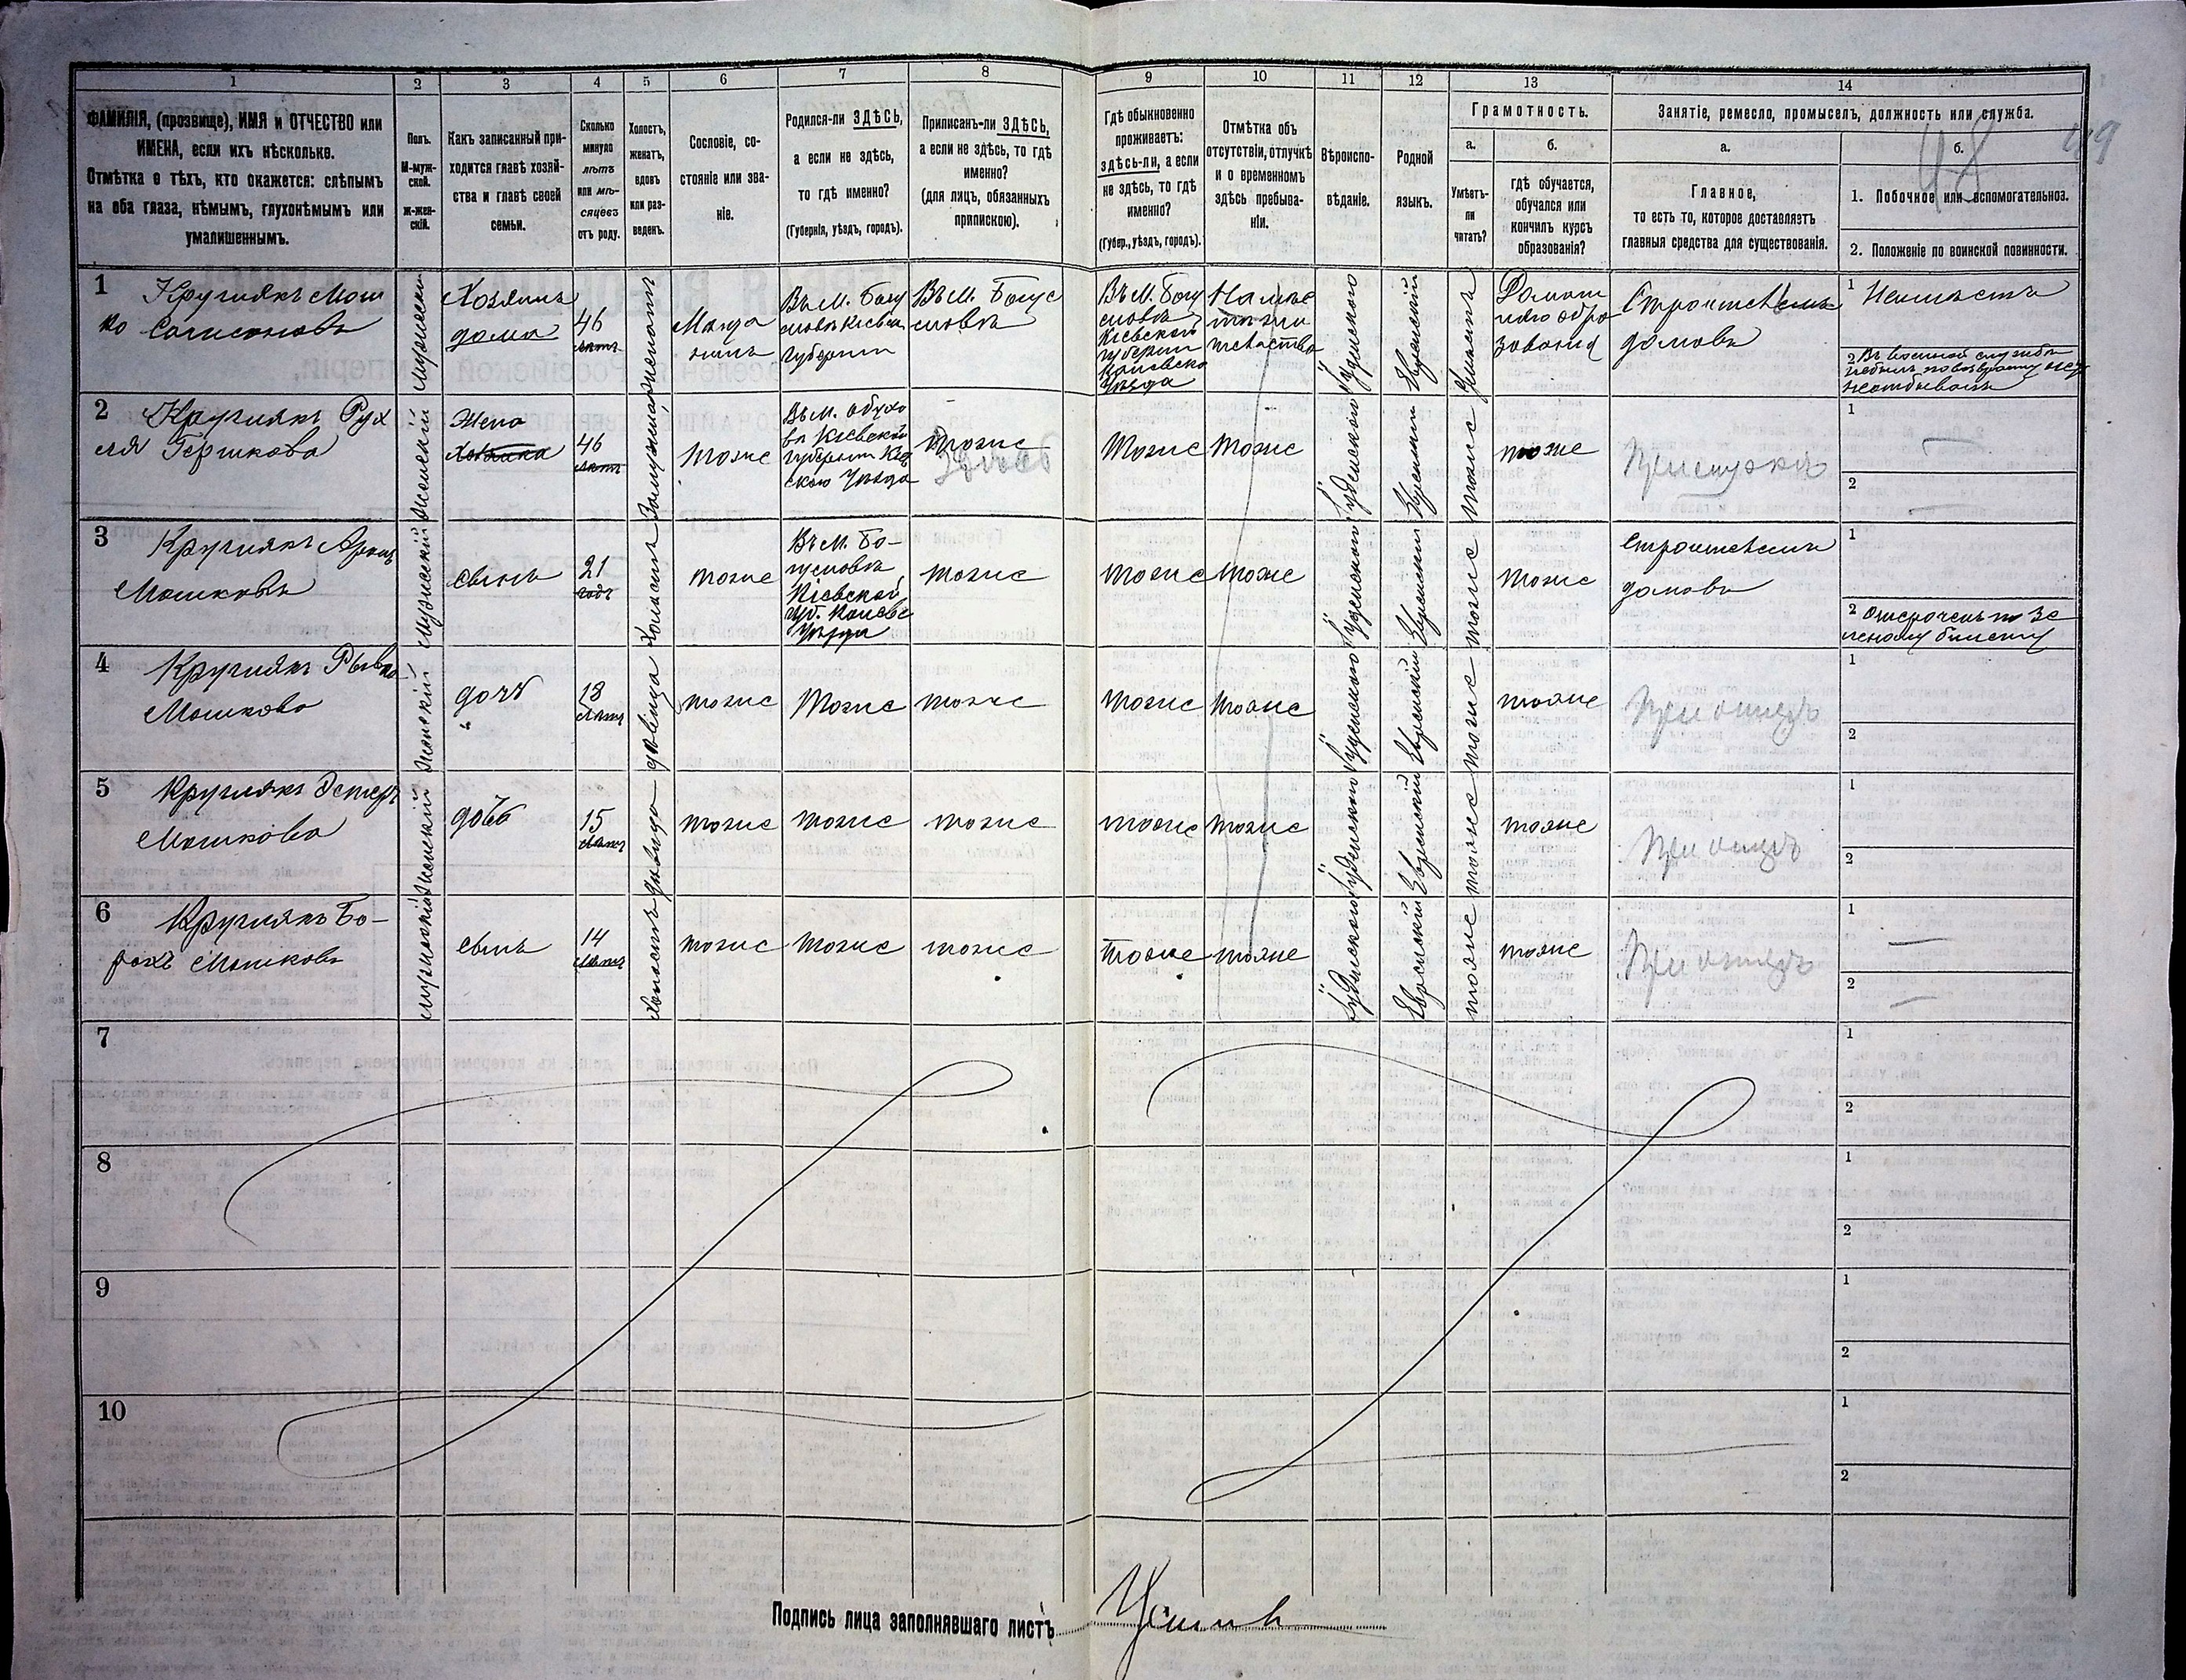 1 2 3 4 5 6 7 8 9 10 11 12 13 14
ФАМИЛІЯ, (прозвище), ИМЯ и ОТЧЕСТВО или
ИМЕНА, если ихъ нѣсколько.
Отмѣтка о тѣхъ, кто окажется: слѣпымъ
на оба глаза, нѣмымъ, глухонѣмымъ или
умалишеннымъ.
Полъ.
М-муж-
ской.
Ж-жен-
скій.
Какъ записанный при-
ходится главѣ хозяй-
ства и главѣ своей
семьи.
Сколько
минуло
лѣтъ
или мѣ-
сяцевъ
отъ роду.
Холостъ,
женатъ,
вдовъ
или раз-
веденъ.
Сословіе, со-
стояніе или зва-
ніе.
Родился-ли ЗДѢСЬ,
а если не здѣсь,
то гдѣ именно?
(Губернія, уѣздъ, городъ).
Приписанъ-ли ЗДѢСЬ,
а если не здѣсь, то гдѣ
именно?
(для лицъ, обязанныхъ
припискою).
Гдѣ обыкновенно
проживаетъ:
здѣсь-ли, а если
не здѣсь, то гдѣ
именно?
(Губер., уѣздъ, городъ).
Отмѣтка объ
отсутствіи, отлучкѣ
и о временномъ
здѣсь пребыва-
ніи.
Вѣроиспо-
вѣданіе.
Родной
языкъ.
Грамотность.
а.
Умѣетъ-
ли
читать?
б.
гдѣ обучается,
обучался или
кончилъ курсъ
образованія?
Занятіе, ремесло, промыселъ, должность или служба.
48 49
а.
Главное,
то есть то, которое доставляетъ
главныя средства для существованія.
б.
1. Побочное или вспомогательное.
2. Положеніе по воинской повинности.
1 Круглякъ Мош
ко
Мужскій
Хозяинъ
дома
46
лѣтъ
женатъ
Мѣща
нинъ
Въ М. Богу
славѣ Кіевск
губерніи
Въ М. Богус
лавѣ
Въ М. Богу
славѣ
Кіевской
губерніи
Каневско
Уѣзда
На мѣс
тѣ жи
тельства
Іудейского
Еврейскій
Умѣетъ
Домаш
няго обра
зованія
Строитель
домовъ
1 Неимѣетъ
2 Въ военной службѣ
2 Круглякъ Рух
ля Гершкова
Женскій
Жена
Хозяина
46
лѣтъ
Замужняя
тоже
Въ М. Обухо
вѣ Кіевской
губерніи Кіев
скаго Уѣзда
тоже
Тоже
Тоже
Іудейского
Еврейскій
тоже
тоже
1
2
3 Круглякъ Аронъ
Мошковъ
Мужскій
сынъ
21
годъ
Холостъ
тоже
Въ М. Бо-
гуславѣ
Кіевской
губ. Канев
Уѣзда
тоже
тоже
тоже
Іудейского
Еврейскій
тоже
тоже
строитель
домовъ
1
2 Отсроченъ по зе
леному билету
4 Круглякъ Рывка
Мошкова
Женскій
дочь
18
лѣтъ
дѣвица
тоже
Тоже
тоже
тоже
тоже
Іудейского
Еврейскій
тоже
тоже
При отцѣ
1
2
5 Круглякъ Эстеръ
Мошкова
Женскій
дочь
15
лѣтъ
дѣвица
тоже
тоже
тоже
тоже
тоже
Іудейского
Еврейскій
тоже
тоже
При отцѣ
1
2
6 Круглякъ Бо-
рохъ Мошковъ
мужскій
сынъ
14
лѣтъ
холостъ
тоже
тоже
тоже
тоже
тоже
Іудейского
Еврейскій
тоже
тоже
При отцѣ
1
2
7
1
2
8
1
2
9
1
2
10
1
2
Подпись лица заполнявшаго листъ